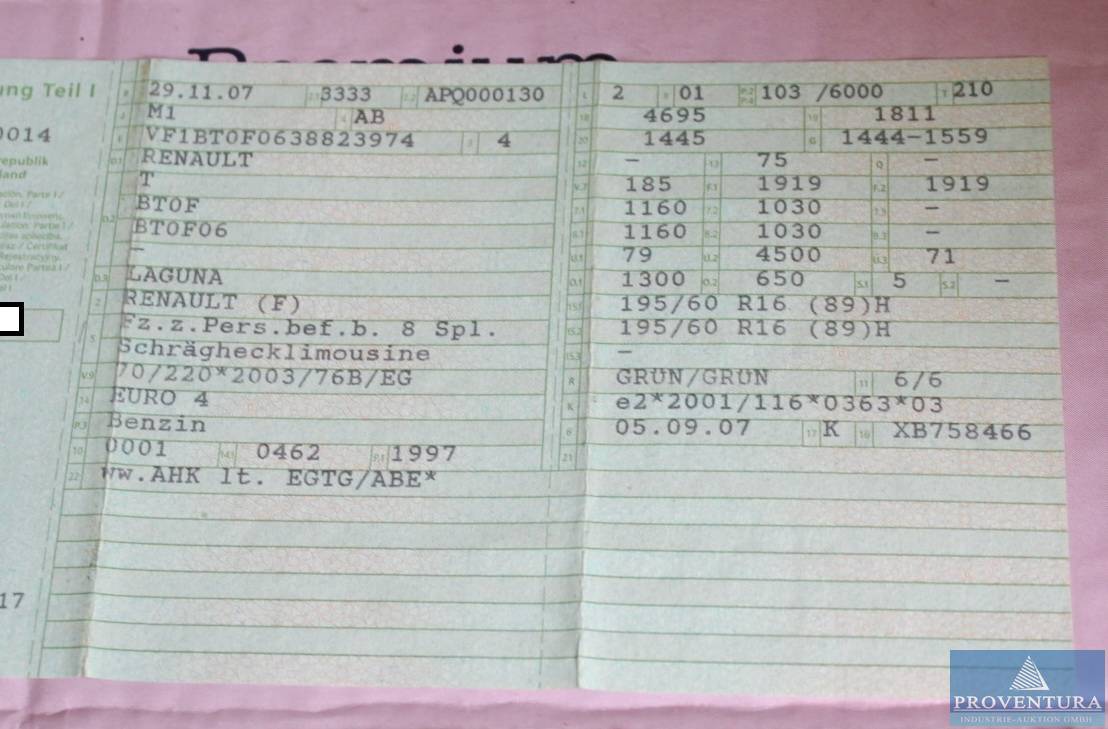 Premium
ung Teil I
0014
epublik
land
17
B 29.11.07 2.1 3333 2.2 APQ000130
J M1 4 AB
E VF1BT0F0638823974 3 4
D.1 RENAULT
T
D.2 BT0F
BT0F06
–
D.3 LAGUNA
2 RENAULT (F)
5 Fz.z.Pers.bef.b. 8 Spl.
Schräghecklimousine
V.9 70/220*2003/76B/EG
14 EURO 4
P.3 Benzin
10 0001 14.1 0462 P.1 1997
22 ww.AHK lt. EGTG/ABE*
L 2 9 01 P.2 P.4 103 /6000 T 210
18 4695 19 1811
20 1445 G 1444-1559
12 – 13 75 Q –
V.7 185 F.1 1919 F.2 1919
7.1 1160 7.2 1030 7.3 –
8.1 1160 8.2 1030 8.3 –
U.1 79 U.2 4500 U.3 71
O.1 1300 O.2 650 S.1 5 S.2 –
15.1 195/60 R16 (89)H
15.2 195/60 R16 (89)H
15.3 –
R GRÜN/GRÜN 11 6/6
K e2*2001/116*0363*03
6 05.09.07 17 K 16 XB758466
21
PROVENTURA
INDUSTRIE-AUKTION GMBH